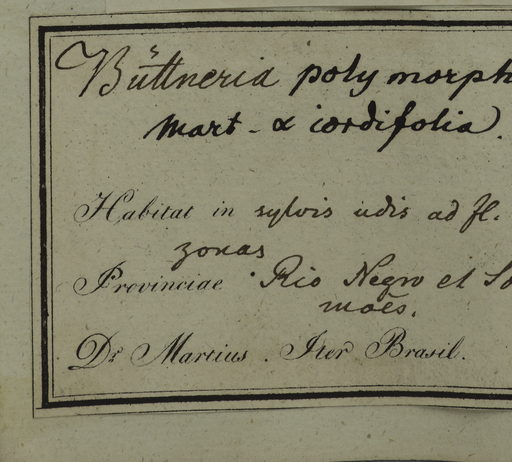 Büttneria polymorph
Mart - α cordifolia.
Habitat in sylvis udis ad fl.
zonas
Provinciae Rio Negro et So
moës.
Dr Martius. Iter Brasil.